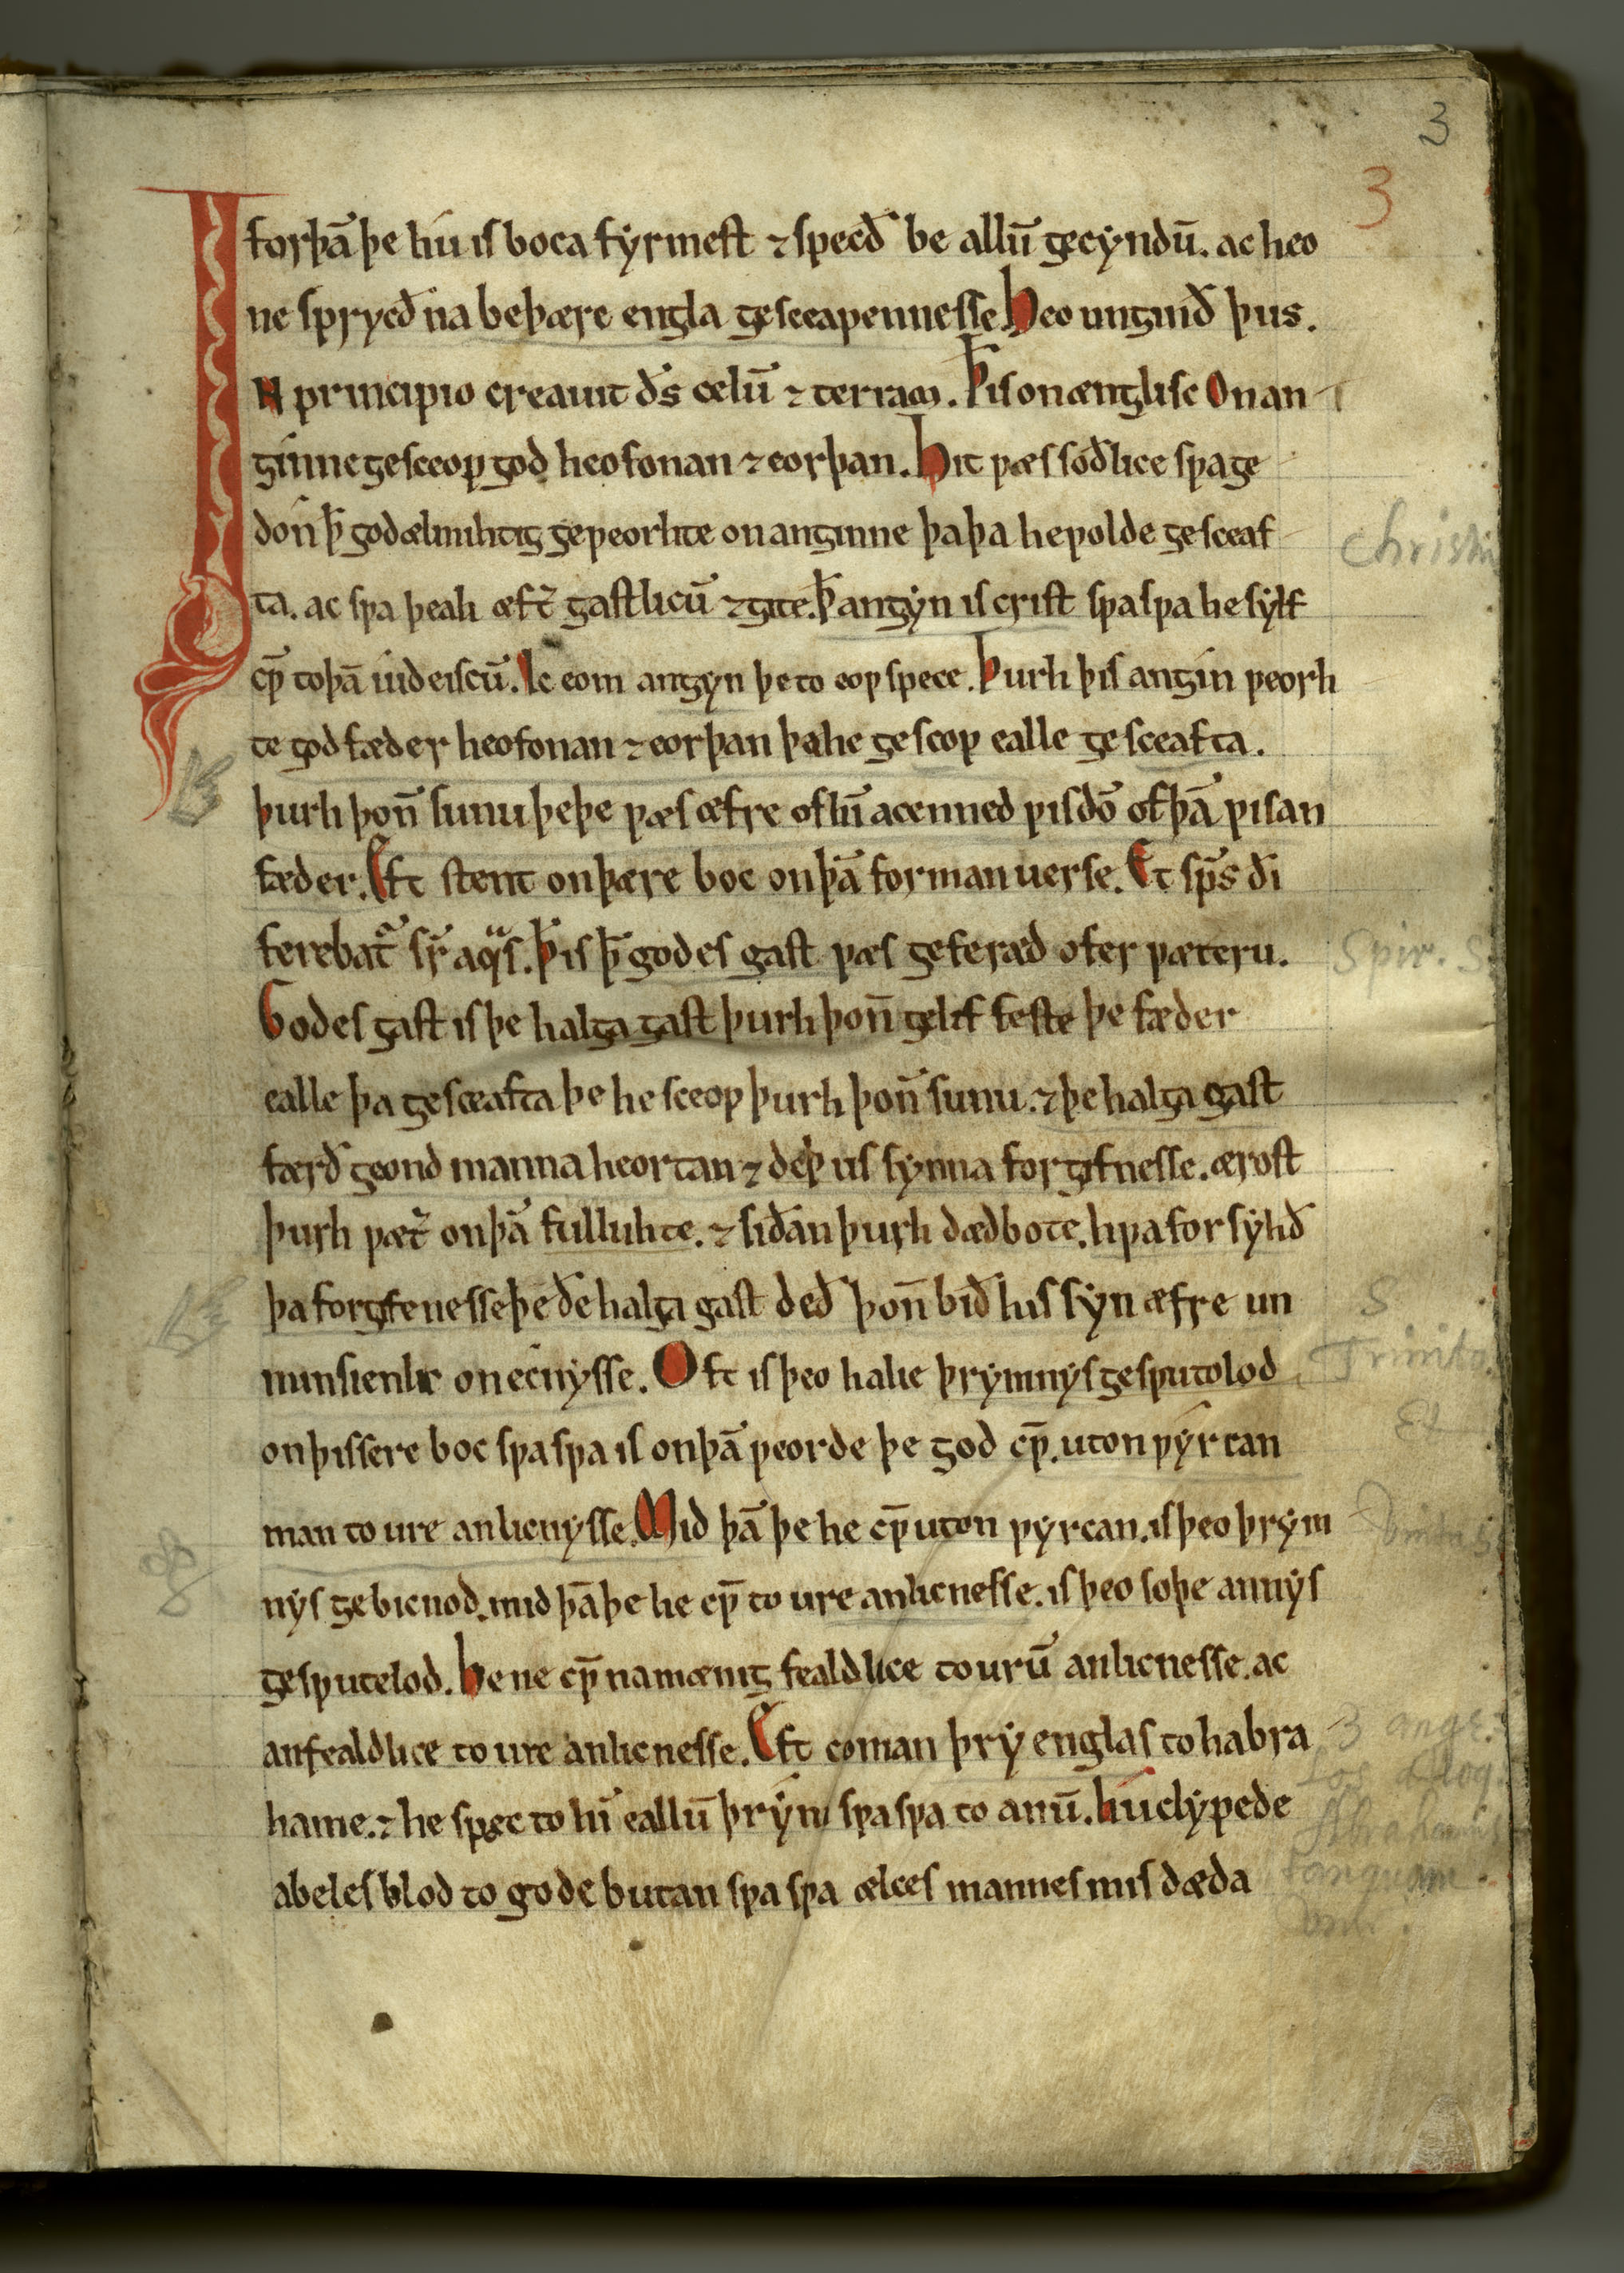 3
3
forþā þe hiu is boca fyrmest ⁊ specð be allū gecyndū. ac heo
ne sprycð na be þære engla gesceapennesse Heo unginð þus.
IN principio creauit d̄s celū ⁊ terram. Ꝥ is on ænglisc On an
ginne gesceop god heofonan ⁊ eorþan. Hit ƿæs soðlice sƿa ge
don ꝥ god ælmihtig geƿeorhte on anginne þa þa he ƿolde gesceaf
ta. ac sƿa þeah æft̄ gastlicū ⁊gite. ꝥ angyn is crist sƿa sƿa he sylf
cƿ̄ to þā iudeiscū. Ic eom angyn þe to eoƿ spece. Þurh þis angin ƿeorh
te god fæder heofonan ⁊ eorþan þa he gescop ealle gesceafta.
þurh þon̄ sunu þe þe ƿæs æfre of hī acenned ƿisdō of þā ƿisan
fæder. Eft stent on þære boc on þā forman uerse. Et sp̄s dī
ferebat᷑ sr̄ aqͣs. Ꝥ is ꝥ godes gast ƿæs geferæd ofer ƿæteru.
Godes gast is þe halga gast þurh þon̄ gelif feste þe fæder
ealle þa gesceafta þe he sceop þurh þon̄ sunu. ⁊ þe halga gast
færð geond manna heortan ⁊ deþ us synna forgifnesse. ærost
þurh ƿæt̄ on þā fulluhte. ⁊ siðan þurh dædbote. hƿa forsyhð
þa forgifenesse þe ðe halga gast deð þon̄ bið his syn æfre un
minsienlic on ecnysse. Oft is þeo halie þrymnys gesƿutolod
on þissere boc sƿa sƿa is on þā ƿeorde þe god cƿ̄. uton ƿyrcan
man to ure anlicnysse. Mid þā þe he cƿ̄ uton ƿyrcan. is þeo þrym
nys gebicnod. mid þā þe he cƿ̄ to ure anlicnesse. is þeo soþe annys
gesƿutelod. He ne cƿ̄ na mænig fealdlice to urū anlicnesse. ac
anfealdlice to ure anlicnesse. Eft coman þry englas to habra
hame. ⁊ he spec to hī eallū þrym sƿa sƿa to anū. hu clypede
abeles blod to gode butan sƿa sƿa ælces mannes misdæda
Spir. S.
S
Trinita.
Et
3 ange.
Abrahamus
tanquam